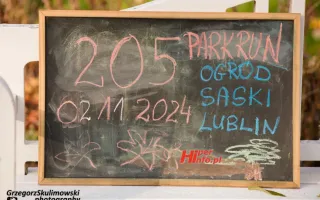 205 PARKRUN
OGRÓD
02.11.2024 SASKI
LUBLIN
Hiper
Info.pl
GrzegorzSkulimowski
photography